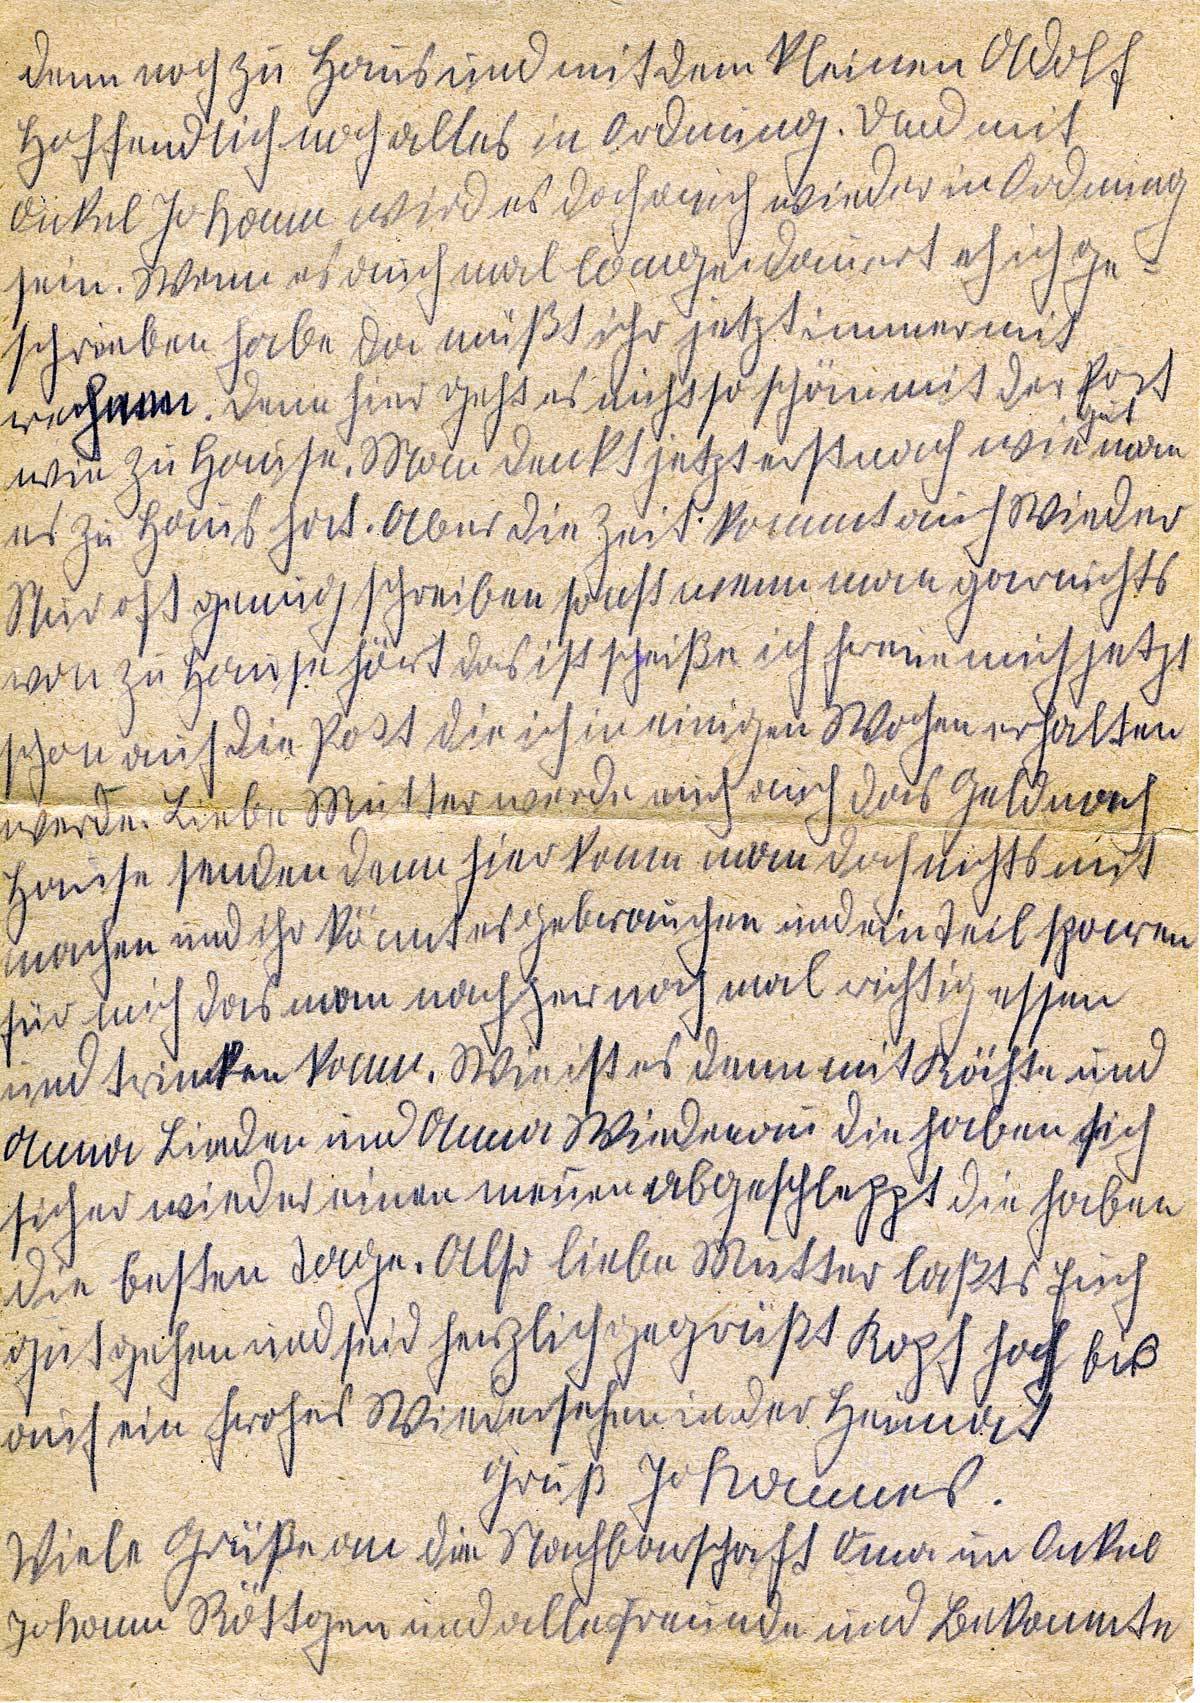 denn noch zu Haus und mit dem kleinen Adolf
Hoffendlich noch alles in Ordnung. Und mit
Onkel Johann wird es doch auch wieder in Ordnung
sein. Wenn es auch mal lange dauert eh ich ge-
schrieben habe da müßt ihr jetzt immer mit
rechnen. Denn hier geht es nicht so schön mit der Post
wie zu Hause. Man denkt jetzt erst nach wie gut man
es zu Haus hat. Aber die Zeit kommt auch Wieder
Nur oft genug schreiben sonst wenn man garnichts
von zu Hause hört das ist scheiße ich freue mich jetzt
schon auf die Post die ich in einigen Wochen erhalten
werde. Liebe Mutter werde euch auch das Geld nach
Hause senden denn hier kann man doch nichts mit
machen und ihr könnt es gebrauchen und ein Teil sparen
für mich das man nachher noch mal richtig essen
und trinken kann. Wie ist es denn mit Käthe und
Anna Linden und Anna Wiederau die haben sich
sicher wieder einen neuen abgeschleppt die haben
die besten Tage. Also liebe Mutter laßts Euch
gut gehen und seid herzlich gegrüßt Kopf hoch bis
auf ein frohes Wiedersehen in der Heimat
Gruß Johannes.
Viele Grüße an die Nachbarschaft Oma un Onkel
Johann Röttgen und alle Freunde und Bekannte